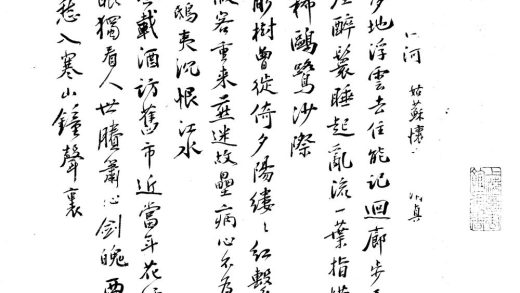 河 姑蘇懷 真
地浮雲去住能記迴廊步
醉鬟睡起亂流一葉指
稀鷗鷺沙際
樹曾從倚夕陽縷〻紅繫
客重來並迷故壘病心
鴟夷沉恨江水
載酒訪舊市近當年花
眼獨看人世賸簫心劍魄兩
愁入寒山鐘聲裏